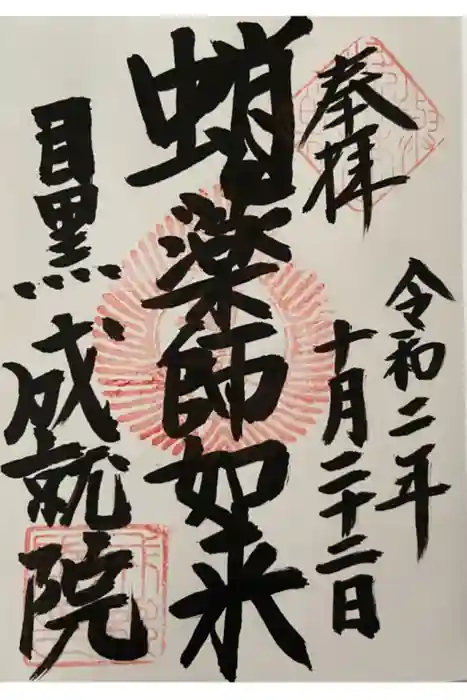 奉拝
令和二年
十月二十二日
蛸薬師如来
目黒成就院